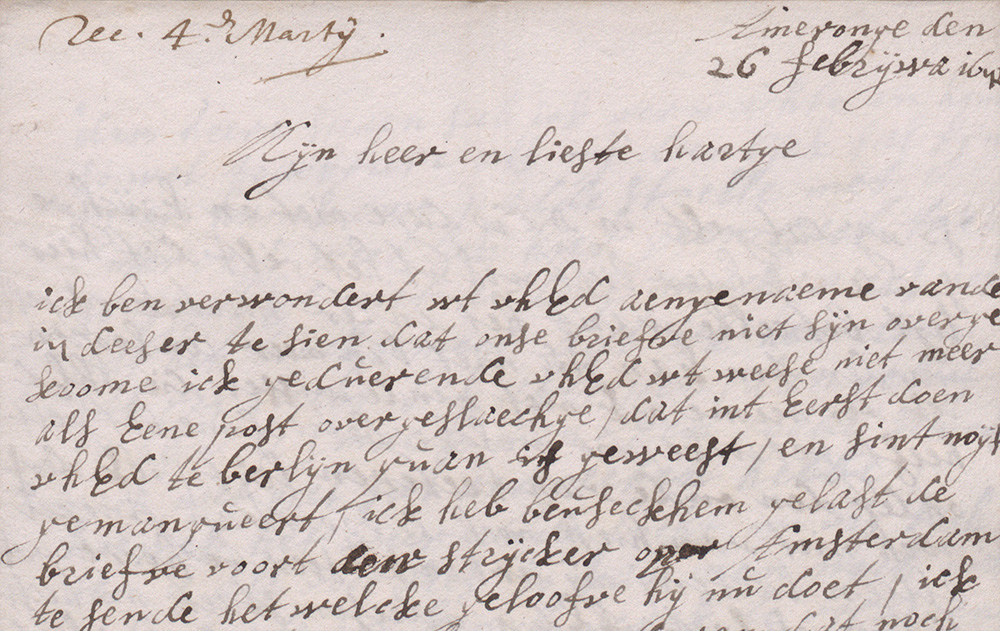 Rec. 4.d Martÿ.
Ameronge den
26 febrÿwa 16
Mÿn heer en liefste hartge
ick ben verwondert wt uhEd aengenaeme vande
in deeser te sien dat onse briefve niet sÿn overge
koome ick geduerende uhEd wt weese niet meer
als Eene post overgeslaechge / dat int Eerst doen
uhEd te berlÿn quam is geweest / en sint noÿt
gemanqueert / ick heb beusecKhem gelast de
briefve voort den strÿcker over Amsterdam
te sende het welcke geloofve hÿ nu doet / ick
dat noch